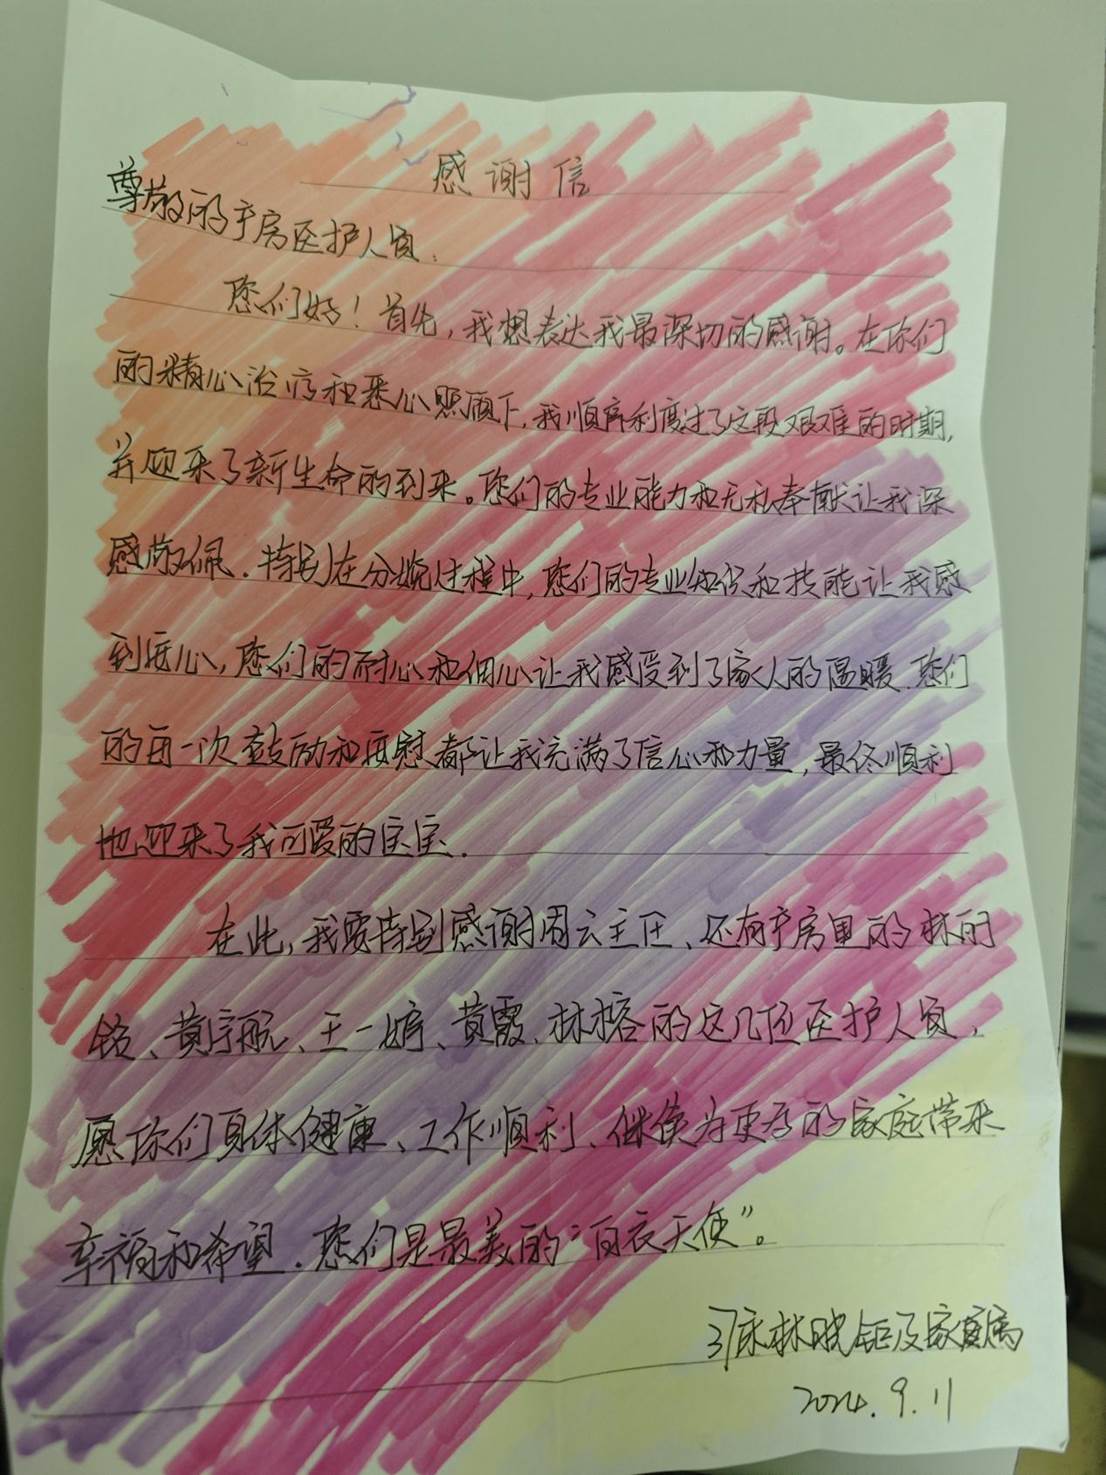 感谢信
尊敬的产房医护人员：
您们好！首先，我想表达我最深切的感谢。在你们
的精心治疗和悉心照顾下，我顺利度过了这段艰难的时期，
并迎来了新生命的到来。您们的专业能力和无私奉献让我深
感敬佩．特别在分娩过程中，您们的专业知识和技能让我感
到安心，您们的耐心和细心让我感受到了家人的温暖．您们
的每一次鼓励和安慰都让我充满了信心和力量，最终顺利
地迎来了我可爱的宝宝．
在此，我要特别感谢周云主任、还有产房里的林丽
钦、黄宇航、王一婷、黄霞、林榕的这几位医护人员，
愿你们身体健康、工作顺利、继续为更多的家庭带来
幸福和希望．您们是最美的“白衣天使”。
3床林晓钜及家属
2024.9.11